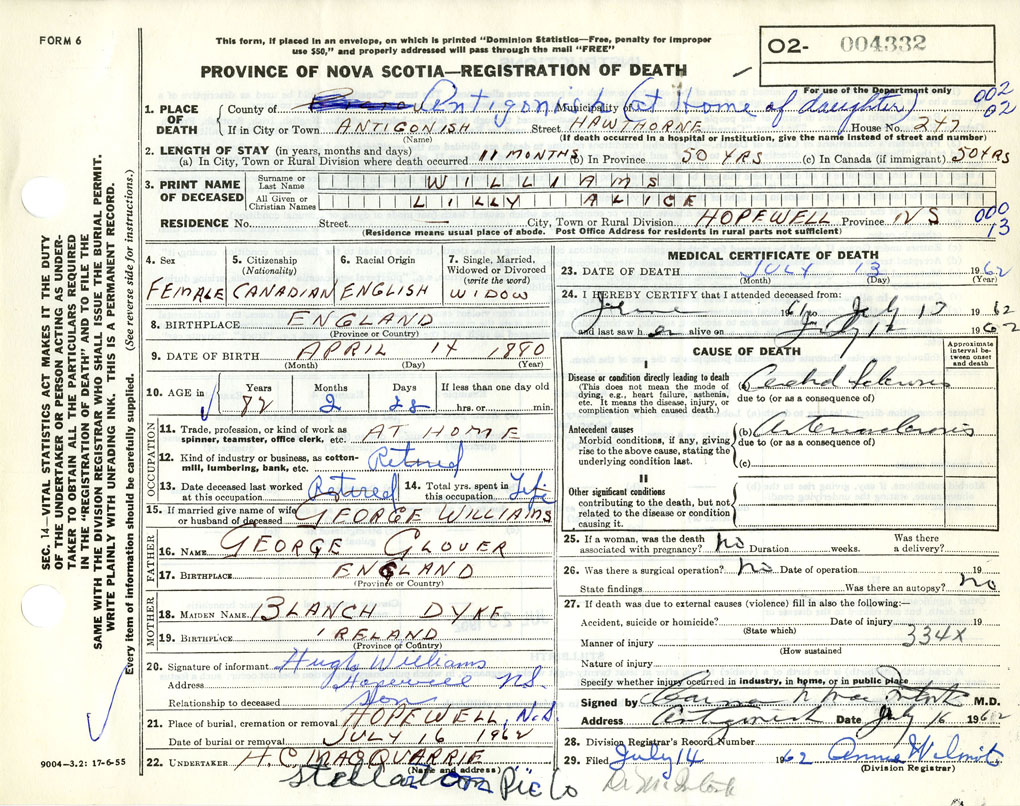 FORM 6
This form, if placed in an envelope, on which is printed "Dominion Statistics—Free, penalty for improper
use $50," and properly addressed will pass through the mail "FREE"
O2- 004332
For use of the Department only
PROVINCE OF NOVA SCOTIA—REGISTRATION OF DEATH
002
02
1. PLACE OF DEATH
County of Antigonish Municipality of (at Home of daughter)
If in City or Town ANTIGONISH Street HAWTHORNE House No. 247
(Name) (If death occurred in a hospital or institution, give the name instead of street and number)
2. LENGTH OF STAY (in years, months and days)
(a) In City, Town or Rural Division where death occurred 11 MONTHS (b) In Province 50 YRS (c) In Canada (if immigrant) 50 YRS
3. PRINT NAME OF DECEASED
Surname or Last Name WILLIAMS
All Given or Christian Names LILLY ALICE
RESIDENCE No. Street — City, Town or Rural Division HOPEWELL Province NS
(Residence means usual place of abode. Post Office Address for residents in rural parts not sufficient)
000
13
4. Sex FEMALE
5. Citizenship (Nationality) CANADIAN
6. Racial Origin ENGLISH
7. Single, Married, Widowed or Divorced (write the word) WIDOW
8. BIRTHPLACE ENGLAND
(Province or Country)
9. DATE OF BIRTH APRIL 14 1880
(Month) (Day) (Year)
10. AGE in Years 82 Months 2 Days 28 If less than one day old
hrs. or min.
OCCUPATION
11. Trade, profession, or kind of work as spinner, teamster, office clerk, etc. AT HOME
12. Kind of industry or business, as cotton-mill, lumbering, bank, etc. Retired
13. Date deceased last worked at this occupation Retired 14. Total yrs. spent in this occupation Life
15. If married give name of wife or husband of deceased GEORGE WILLIAMS
FATHER
16. NAME GEORGE GLOVER
17. BIRTHPLACE ENGLAND
(Province or Country)
MOTHER
18. MAIDEN NAME BLANCH DYKE
19. BIRTHPLACE IRELAND
(Province or Country)
20. Signature of informant Hugh Williams
Address Hopewell NS.
Relationship to deceased Son
21. Place of burial, cremation or removal HOPEWELL, N.S
Date of burial or removal JULY 16 1962
22. UNDERTAKER H.C. MACQUARRIE
(Name and address)
Stellarton Pic Co
9004-3.2: 17-6-55
MEDICAL CERTIFICATE OF DEATH
23. DATE OF DEATH JULY 13 1962
(Month) (Day) (Year)
24. I HEREBY CERTIFY that I attended deceased from:
June 1961 to July 13 1962
and last saw her alive on July 12 1962
CAUSE OF DEATH
Approximate interval between onset and death
I
Disease or condition directly leading to death
(This does not mean the mode of dying, e.g., heart failure, asthenia, etc. It means the disease, injury, or complication which caused death.)
(a)
due to (or as a consequence of)
Antecedent causes
Morbid conditions, if any, giving rise to the above cause, stating the underlying condition last.
(b) Arteriosclerosis
due to (or as a consequence of)
(c)
II
Other significant conditions
contributing to the death, but not related to the disease or condition causing it.
25. If a woman, was the death associated with pregnancy? No Duration weeks. Was there a delivery?
26. Was there a surgical operation? No Date of operation 19
State findings Was there an autopsy? No
27. If death was due to external causes (violence) fill in also the following:—
Accident, suicide or homicide? Date of injury 19
(State which)
334X
Manner of injury
(How sustained)
Nature of injury
Specify whether injury occurred in industry, in home, or in public place
Signed by M.D.
Address Antigonish Date July 16 1962
28. Division Registrar's Record Number
29. Filed July 14 1962
(Division Registrar)
SEC. 14—VITAL STATISTICS ACT MAKES IT THE DUTY
OF THE UNDERTAKER OR PERSON ACTING AS UNDER-
TAKER TO OBTAIN ALL THE PARTICULARS REQUIRED
IN THE "REGISTRATION OF DEATH" AND TO FILE THE
SAME WITH THE DIVISION REGISTRAR WHO SHALL ISSUE THE BURIAL PERMIT.
WRITE PLAINLY WITH UNFADING INK. THIS IS A PERMANENT RECORD.
Every item of information should be carefully supplied. (See reverse side for instructions.)